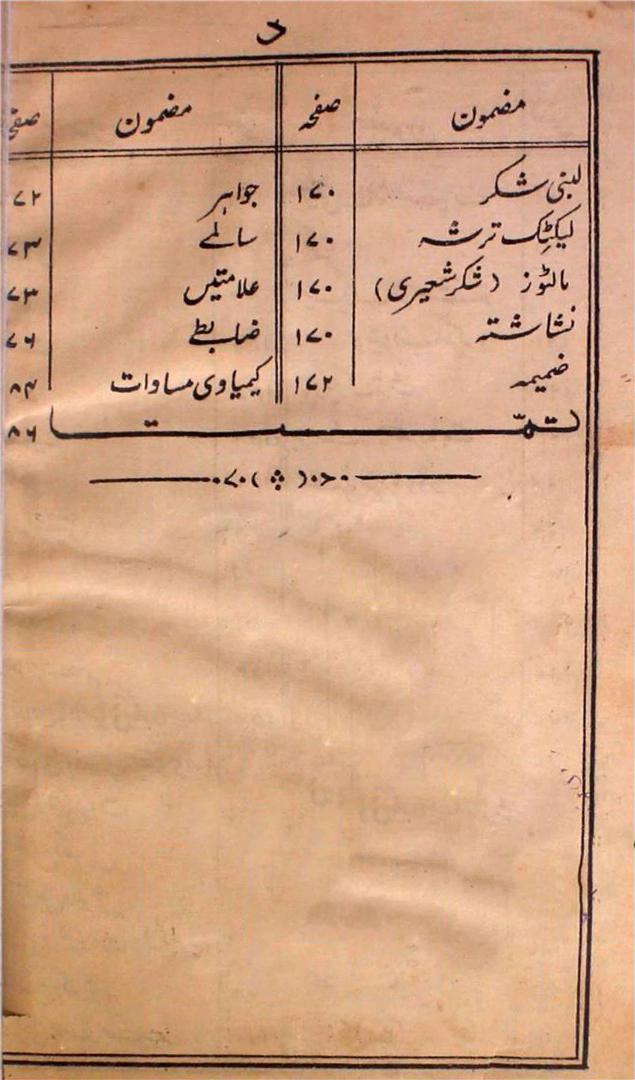 د
مضمون صفحہ مضمون صفحہ
لبنی شکر ۱۷۰ جواہر ۷۲
لیکٹِک ترشہ ۱۷۰ سالمے ۷۳
مالٹوز (شکر شعیری) ۱۷۰ علامتیں ۷۳
نشاشتہ ۱۷۰ ضابطے ۷۶
ضمیمہ ۱۷۲ کیمیاوی مساوات ۸۴
تمّت ۸۶